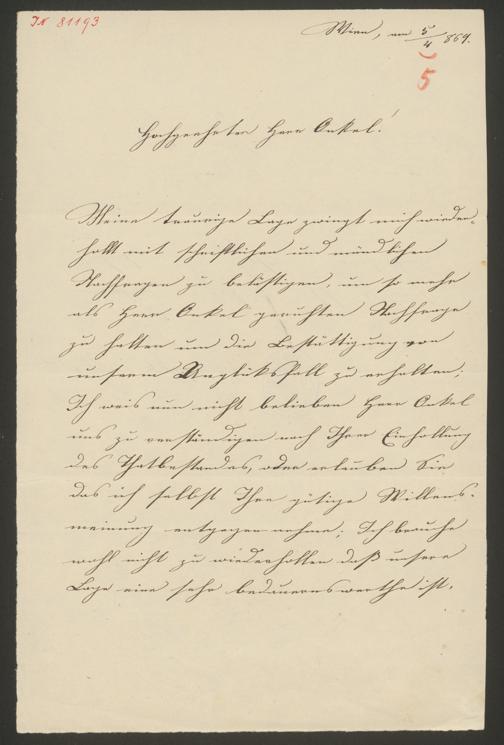 IN 81193
Wien, am 5/4 869.
5
Hochgeehrter Herr Onkel!
Meine traurige Lage zwingt mich wieder-
hollt mit schriftlichen und mündlichen
Nachfragen zu belästigen, um so mehr
als Herr Onkel geruhten Nachfrage
zu halten um die Bestättigung von
unserem Unglüksfall zu erhalten;
Ich weis nun nicht belieben Herr Onkel
uns zu verständigen nach Ihrer Einhollung
des Thatbestandes, oder erlauben Sie
das ich selbst Ihre gütige Willens-
meinung entgegen nehme; Ich brauche
wohl nicht zu wiederhollen daß unsere
Lage eine sehr bedauernswerthe ist.